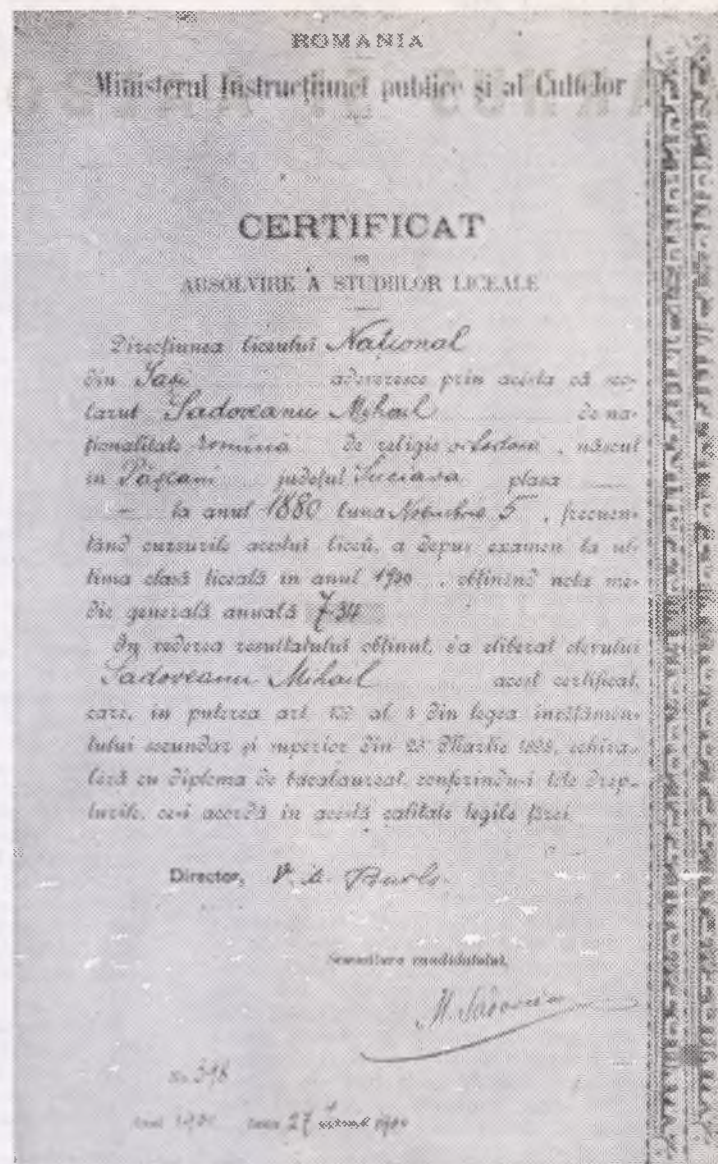 ROMANIA
Ministerul Instrucțiunei publice și al Cultelor
CERTIFICAT
DE
ABSOLVIRE A STUDIILOR LICEALE
Direcțiunea liceului Național
din Iași adeveresce prin acésta că șco-
larul Sadoveanu Mihail de na-
ționalitate română de religie ortodoxă, născut
in Pășcani județul Suciava plasa
la anul 1880 luna Noembre 5, frecuen-
tând cursurile acestui liceŭ, a depus examen la ul-
tima clasă liceală in anul 1900, obținênd nota me-
die generală anuală 7.34
In vederea resultatului obținut, s'a eliberat elevului
Sadoveanu Mihail acest certificat,
care, in puterea art. al. din legea invĕțămên-
tului secundar și superior din 23 Martie 1898, echiva-
léză cu diploma de bacalaureat, conferindu-i tóte drep-
turile, ce-i acordă in acéstă calitate legile țĕrei
Director,
Semnătura candidatului,
M. Sadoveanu
No. 398
1900 27 1900